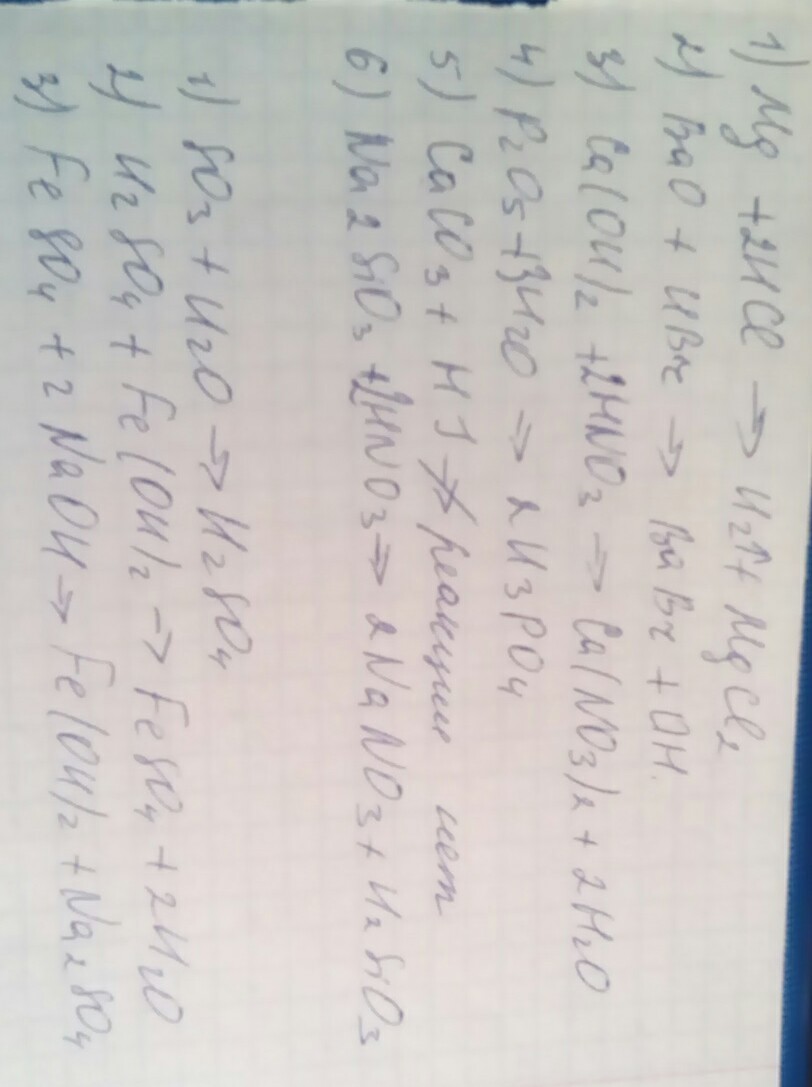 1) Mg + 2HCl → H₂↑ + MgCl₂
2) BaO + HBr → BaBr + OH.
3) Ca(OH)₂ + 2HNO₃ → Ca(NO₃)₂ + 2H₂O
4) P₂O₅ + 3H₂O → 2H₃PO₄
5) CaCO₃ + HJ ↛ реакции нет
6) Na₂SiO₃ + 2HNO₃ → 2NaNO₃ + H₂SiO₃
1) SO₃ + H₂O → H₂SO₄
2) H₂SO₄ + Fe(OH)₂ → FeSO₄ + 2H₂O
3) FeSO₄ + 2NaOH → Fe(OH)₂ + Na₂SO₄